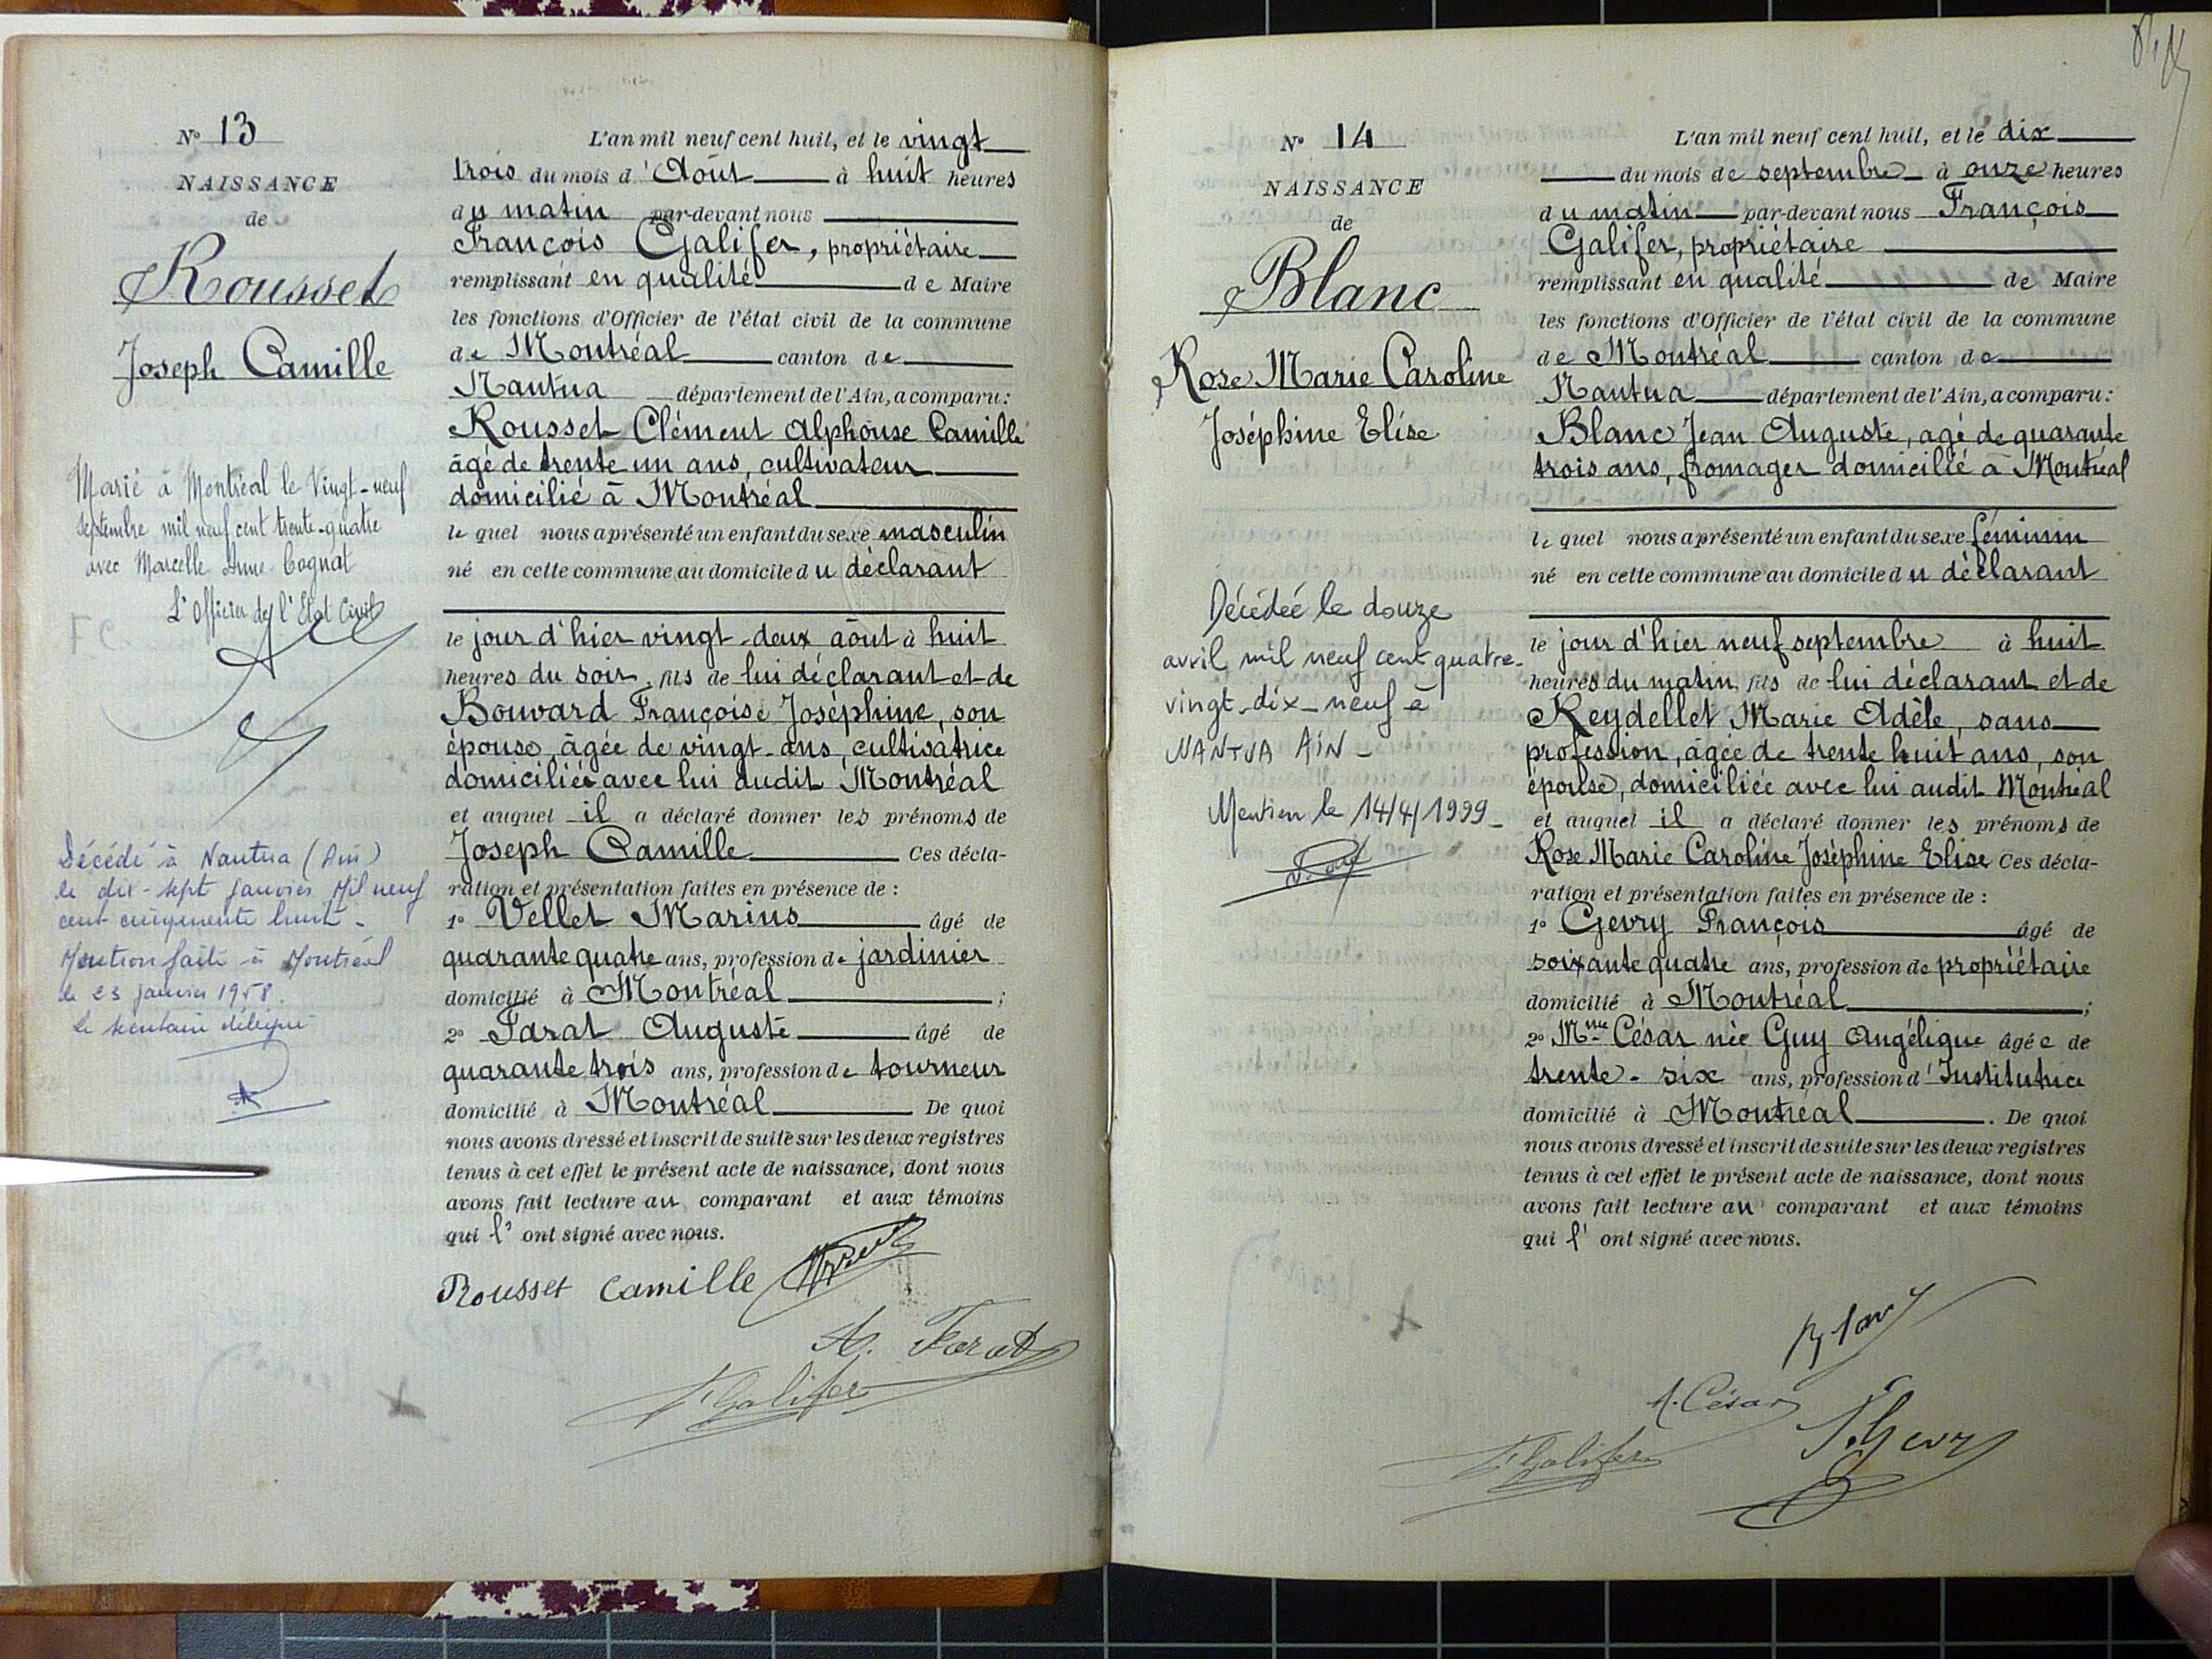 N° 13
NAISSANCE
de
Rousset
Joseph Camille
Marié à Montréal le Vingt-neuf
septembre mil neuf cent trente-quatre
avec Marcelle Anne Cognat
L'Officier de l'Etat Civil
Décédé à Nantua (Ain)
le dix-sept janvier Mil neuf
cent cinquante huit -
Mention faite à Montréal
le 23 janvier 1958.
Le secrétaire délégué
L'an mil neuf cent huit, et le vingt
trois du mois d'Août à huit heures
du matin par-devant nous
François Galifer, propriétaire
remplissant en qualité de Maire
les fonctions d'Officier de l'état civil de la commune
de Montréal canton de
Nantua département de l'Ain, a comparu:
Rousset Clément Alphonse Camille
âgé de trente un ans, cultivateur
domicilié à Montréal
le quel nous a présenté un enfant du sexe masculin
né en cette commune au domicile du déclarant
le jour d'hier vingt-deux août à huit
heures du soir, fils de lui déclarant et de
Bouvard Françoise Joséphine, son
épouse, âgée de vingt-ans, cultivatrice
domiciliée avec lui audit Montréal
et auquel il a déclaré donner les prénoms de
Joseph Camille Ces décla-
ration et présentation faites en présence de :
1° Vellet Marius âgé de
quarante quatre ans, profession de jardinier
domicilié à Montréal ;
2° Farat Auguste âgé de
quarante trois ans, profession de tourneur
domicilié à Montréal De quoi
nous avons dressé et inscrit de suite sur les deux registres
tenus à cet effet le présent acte de naissance, dont nous
avons fait lecture au comparant et aux témoins
qui l' ont signé avec nous.
Rousset Camille
A. Farat
F Galifer
N° 14
NAISSANCE
de
Blanc
Rose Marie Caroline
Joséphine Elise
Décédée le douze
avril mil neuf cent quatre-
vingt-dix-neuf à
NANTUA AIN -
Mention le 14/4/1999 -
L'an mil neuf cent huit, et le dix
du mois de septembre à onze heures
du matin par-devant nous François
Galifer, propriétaire
remplissant en qualité de Maire
les fonctions d'Officier de l'état civil de la commune
de Montréal canton de
Nantua département de l'Ain, a comparu:
Blanc Jean Auguste, agé de quarante
trois ans, fromager domicilié à Montréal
le quel nous a présenté un enfant du sexe féminin
né en cette commune au domicile du déclarant
le jour d'hier neuf septembre à huit
heures du matin, fils de lui déclarant et de
Reydellet Marie Adèle, sans
profession, âgée de trente huit ans, son
épouse, domiciliée avec lui audit Montréal
et auquel il a déclaré donner les prénoms de
Rose Marie Caroline Joséphine Elise Ces décla-
ration et présentation faites en présence de :
1° Gevry François âgé de
soixante quatre ans, profession de propriétaire
domicilié à Montréal ;
2° Mme César née Guy Angélique âgée de
trente-six ans, profession d'Institutrice
domicilié à Montréal . De quoi
nous avons dressé et inscrit de suite sur les deux registres
tenus à cet effet le présent acte de naissance, dont nous
avons fait lecture au comparant et aux témoins
qui l' ont signé avec nous.
Blanc
A. César
F. Gevry
F Galifer